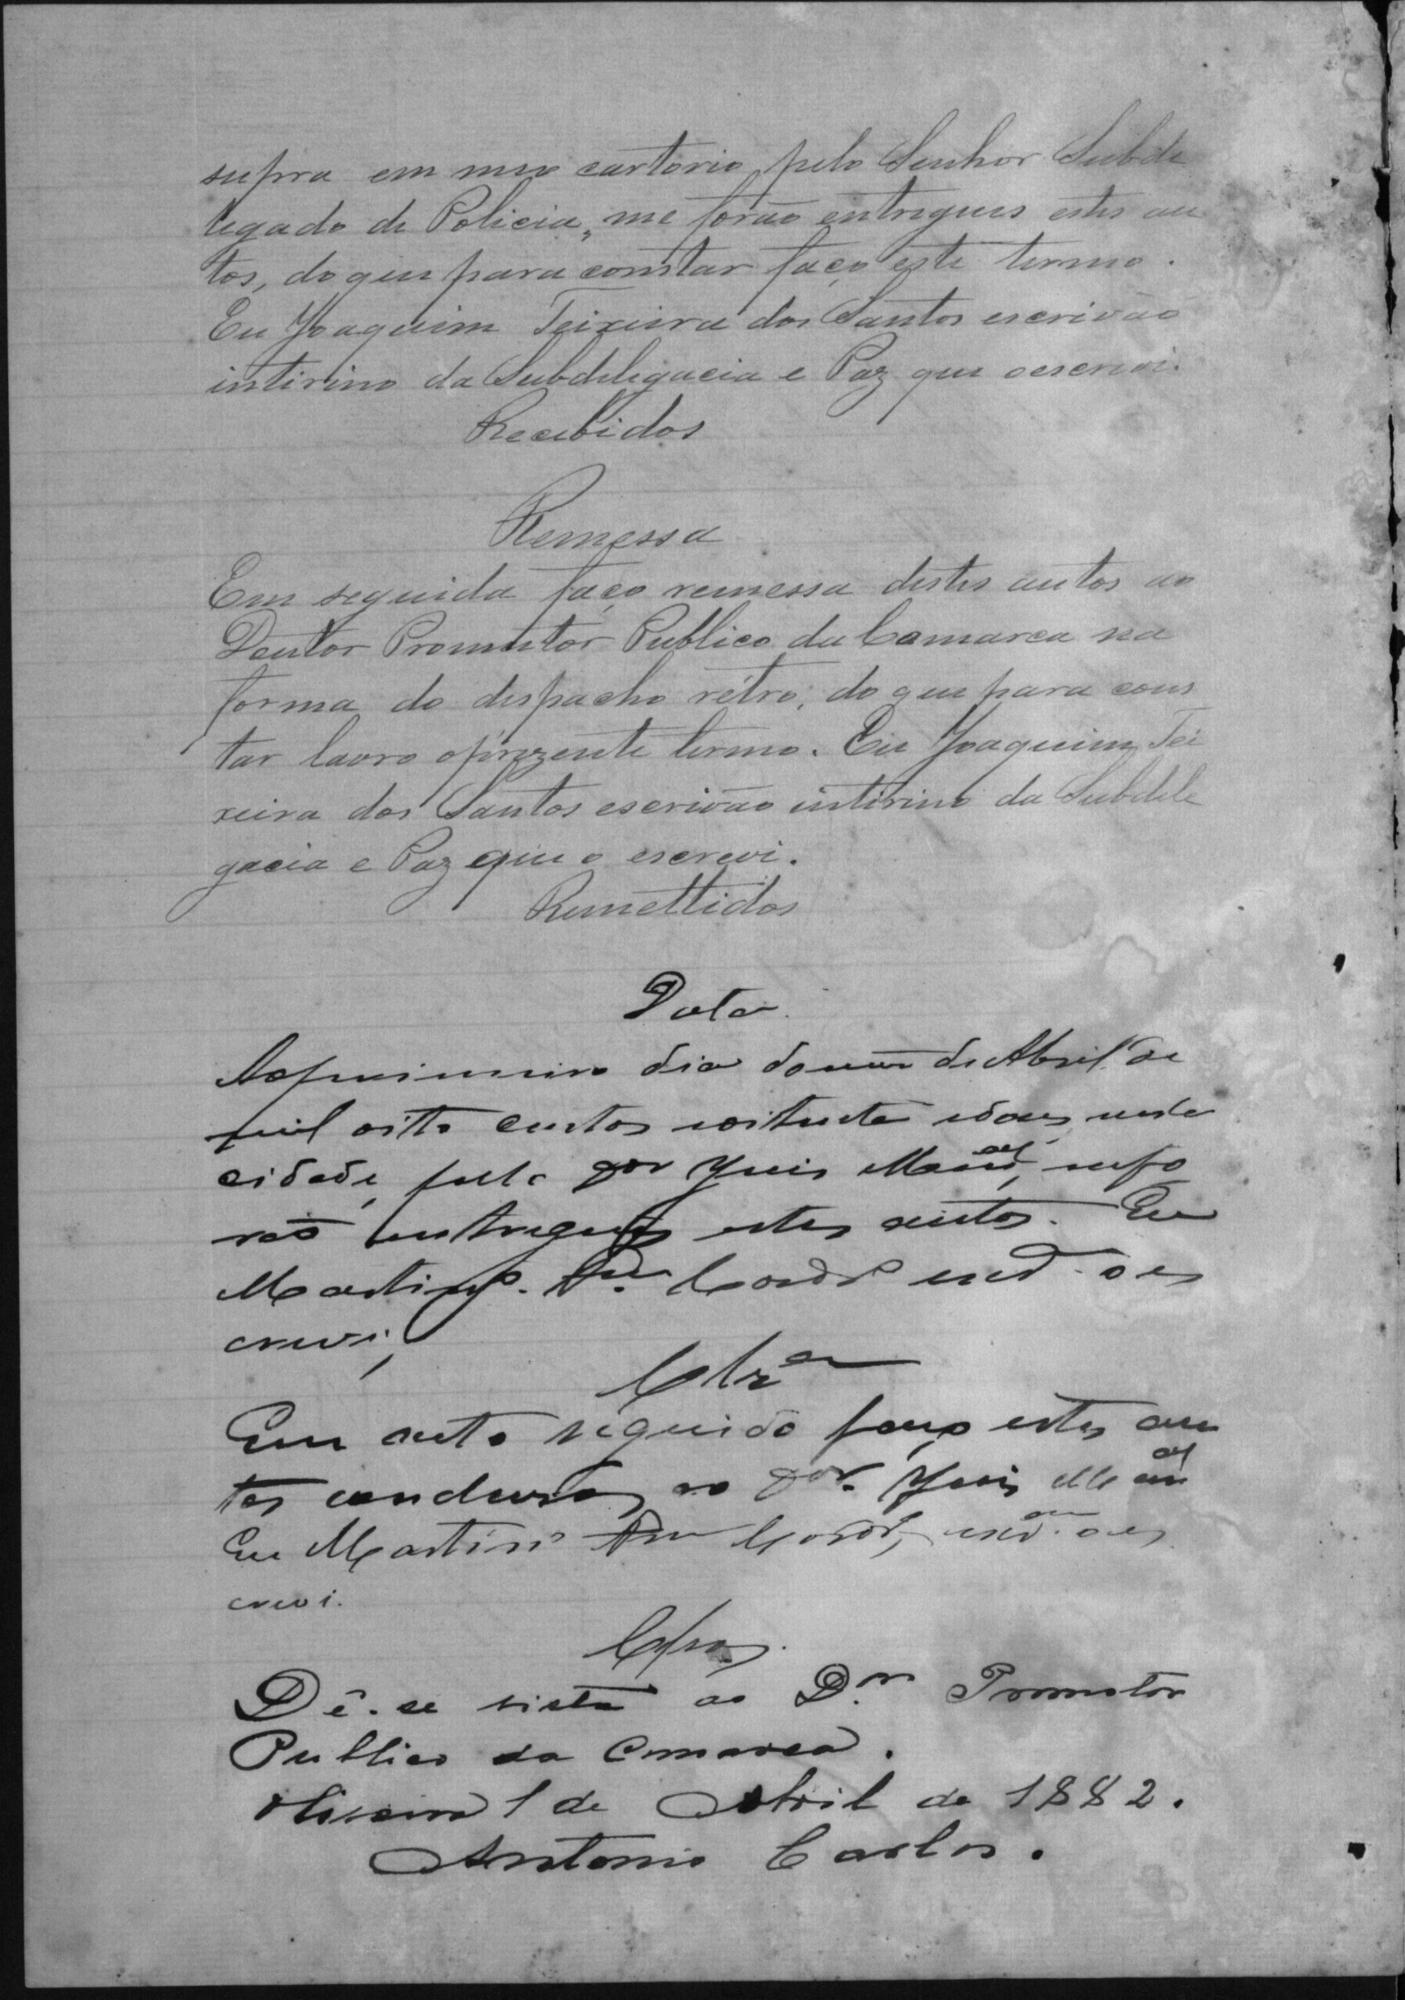 supra em meu cartorio pelo Senhor Subde
legado de Policia, me forão entregues estes au
tos, do que para constar faço este termo.
Eu Joaquim Teixeira dos Santos escrivão
intirino da Subdeligacia e Paz que o escrevi.
Recebidos
Remessa
Em seguida faço remessa destes autos ao
Doutor Promutor Publico da Comarca na
forma do despacho rétro, do que para cons
tar lavro o prezente termo. Eu Joaquim Tei
xeira dos Santos escrivão intirino da Subdele
gacia e Paz que o escrevi.
Remettidos
Data
Ao primeiro dia do mes de Abril de
mil oito centos e oitenta e dous nesta
cidade, pelo Dor Juis Mual, me fo
rão entregues estes autos. Eu
Martino. o es
crevi,
Clzam
Em acto seguido faço estes au
tos concluzos ao Dor. Juis Mual
Eu Martino o es
crevi.
Clzos.
Dê-se vista ao Dor Promotor
Publico da Comarca.
Oliveira 1 de Abril de 1882.
Antonio Carlos.